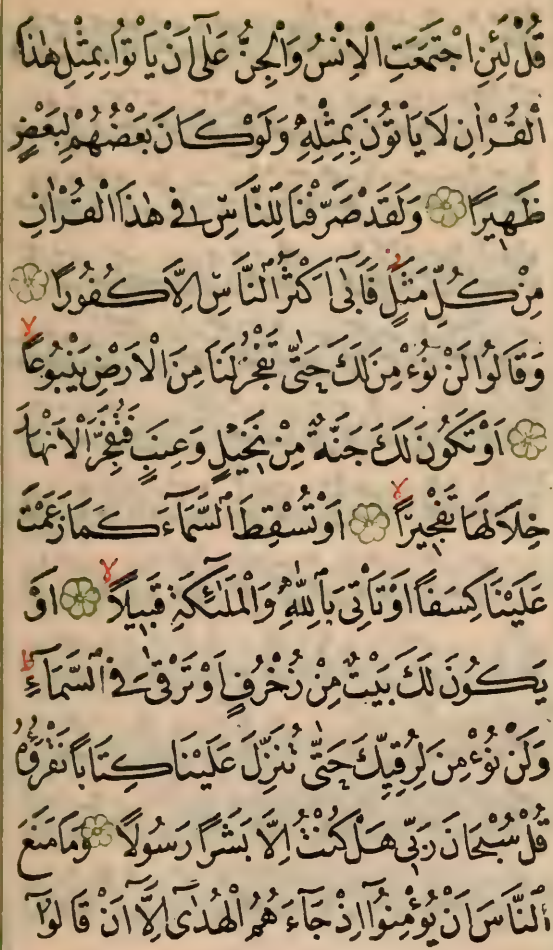 قُلْ لَئِنِ اجْتَمَعَتِ الْاِنْسُ وَالْجِنُّ عَلٰٓى اَنْ يَاْتُوا بِمِثْلِ هٰذَا
الْقُرْاٰنِ لَا يَاْتُونَ بِمِثْلِهٖ وَلَوْ كَانَ بَعْضُهُمْ لِبَعْضٍ
ظَهِيرًا ۝ وَلَقَدْ صَرَّفْنَا لِلنَّاسِ فٖى هٰذَا الْقُرْاٰنِ
مِنْ كُلِّ مَثَلٍ فَاَبٰٓى اَكْثَرُ النَّاسِ اِلَّا كُفُورًا ۝
وَقَالُوا لَنْ نُؤْمِنَ لَكَ حَتّٰى تَفْجُرَ لَنَا مِنَ الْاَرْضِ يَنْبُوعًا
۝ اَوْ تَكُونَ لَكَ جَنَّةٌ مِنْ نَخٖيلٍ وَعِنَبٍ فَتُفَجِّرَ الْاَنْهَارَ
خِلَالَهَا تَفْجٖيرًا ۝ اَوْ تُسْقِطَ السَّمَٓاءَ كَمَا زَعَمْتَ
عَلَيْنَا كِسَفًا اَوْ تَاْتِىَ بِاللّٰهِ وَالْمَلٰٓئِكَةِ قَبٖيلًا ۝ اَوْ
يَكُونَ لَكَ بَيْتٌ مِنْ زُخْرُفٍ اَوْ تَرْقٰى فِى السَّمَٓاءِ
وَلَنْ نُؤْمِنَ لِرُقِيِّكَ حَتّٰى تُنَزِّلَ عَلَيْنَا كِتَابًا نَقْرَؤُهُ
قُلْ سُبْحَانَ رَبّٖى هَلْ كُنْتُ اِلَّا بَشَرًا رَسُولًا ۝ وَمَا مَنَعَ
النَّاسَ اَنْ يُؤْمِنُٓوا اِذْ جَٓاءَهُمُ الْهُدٰٓى اِلَّٓا اَنْ قَالُٓوا